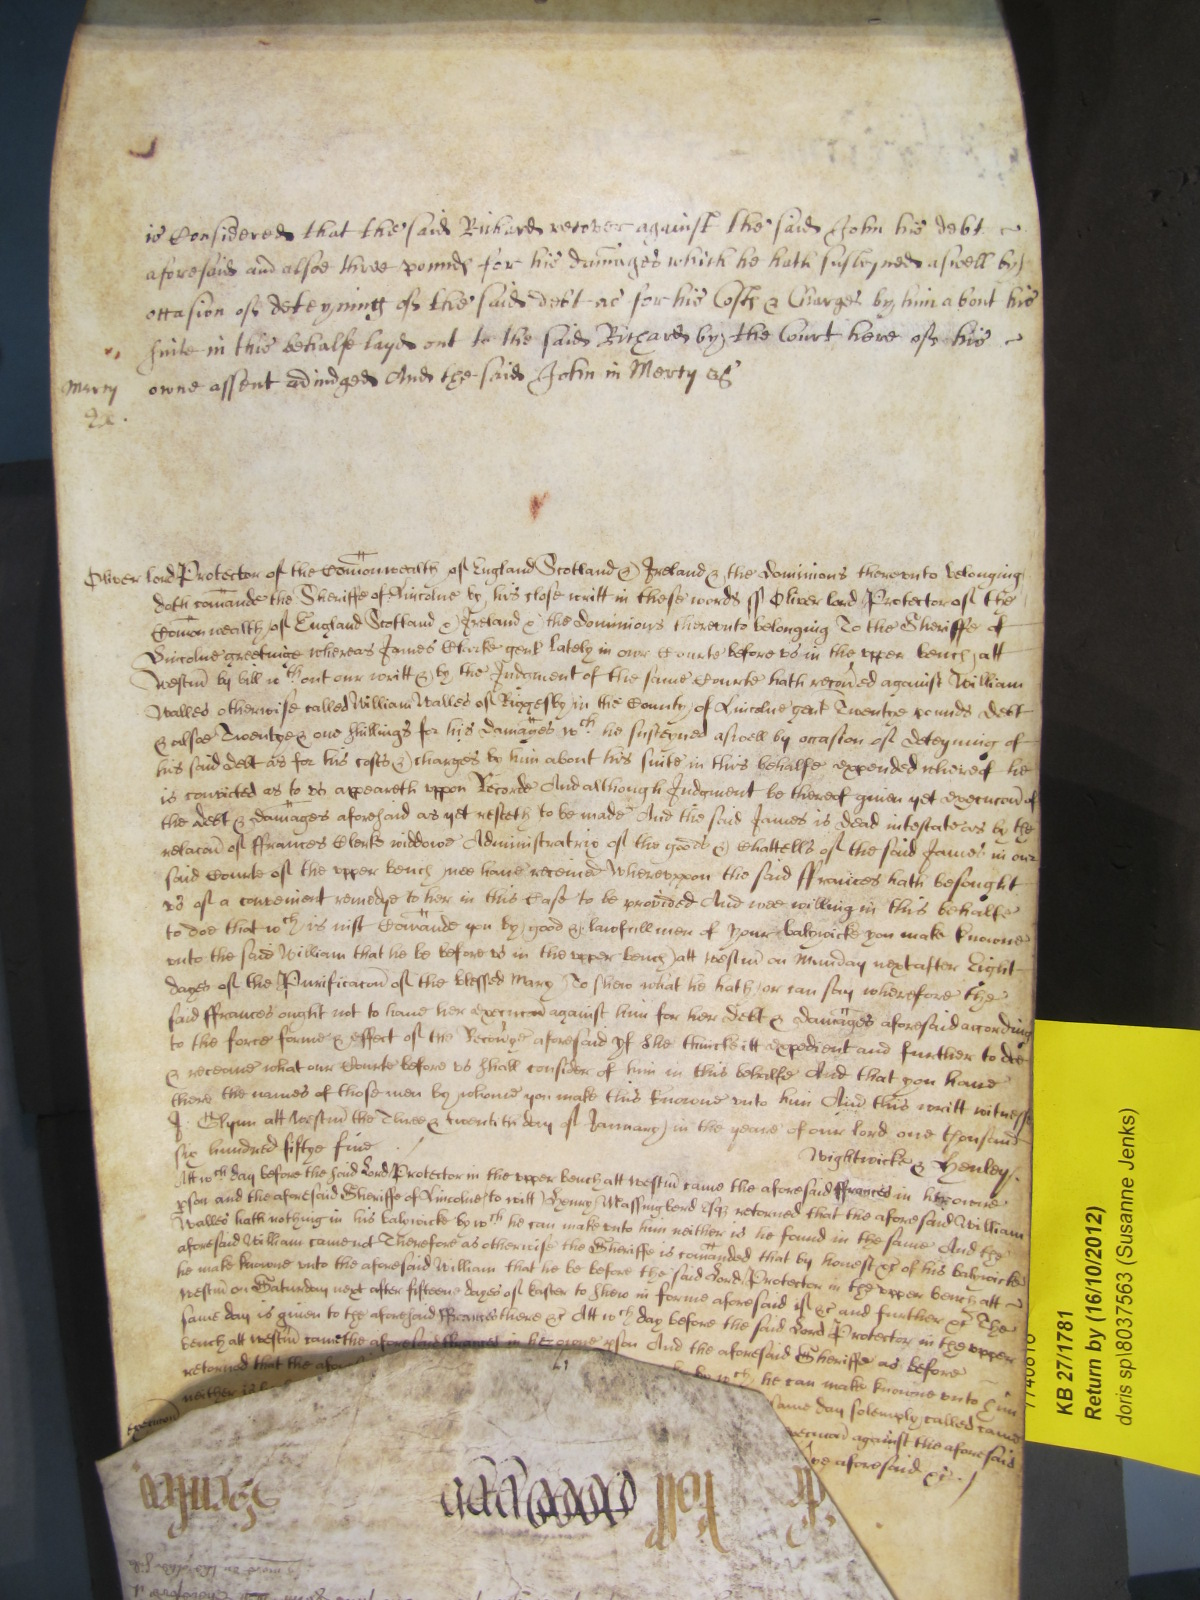 is Considered that the said Richard recover against the said John his debt
aforesaid and alsoe three pounds for his damages which he hath susteyned aswell by
occasion of deteyning of the said debt as for his Costs & Charges by him about his
suite in this behalfe layd out to the said Richard by the Court here of his
owne assent adiudged And the said John in Mercy &c
Mercy
Oliver lord Protector of the Comonwealth of England Scotland & Ireland & the dominions thereunto belonging
doth comande the Sheriffe of Lincolne by his close writt in these words ss Oliver lord Protector of the
Comonwealth of England Scotland & Ireland & the dominions thereunto belonging To the Sheriffe of
Lincolne greetinge whereas James Clerke gent lately in our Courte before vs in the vpper bench att
Westm by bill wth out our writt & by the Judgment of the same Courte hath recoued against William
Walles otherwise called William Walles of Riggesby in the County of Lincolne gent Twentye pounds debt
& alsoe Twentye & one shillings for his damages wch he susteyned aswell by occasion of deteyning of
his said debt as for his costs & charges by him about his suite in this behalfe expended whereof he
is convicted as to vs appeareth vppon Recorde And although Judgment be thereof giuen yet execucon of
the debt & damages aforesaid as yet resteth to be made And the said James is dead intestate as by the
relacon of ffrances Clerke widdowe Administratrix of the goods & Chattells of the said James in our
said Courte of the vpper bench wee haue receiued Wherevppon the said ffrances hath besought
vs of a convenient remedye to her in this Case to be provided And wee willing in this behalfe
to doe that wch is iust Comande you by good & lawfull men of your balywicke you make knowne
vnto the said William that he be before vs in the vpper bench att Westm on Munday next after Eight
dayes of the Purificacon of the blessed Mary To shew what he hath or can say wherefore the
said ffrances ought not to haue her execucon against him for her debt & damages aforesaid according
to the force forme & effect of the Recouye aforesaid yf she thincke itt expedient and further to doe
& receaue what our Courte before vs shall consider of him in this behalfe And that you haue
there the names of those men by whome you make this knowne vnto him And this writt witnesse
J Glynn att Westm the Three & twentith day of January in the yeare of our lord one thousand
six hundred fiftye fiue
Wightwicke & Henley
Att wch day before the said Lord Protector in the vpper bench att Westm came the aforesaid ffrances in her owne
pson and the aforesaid Sheriffe of Lincolne to witt Henry Massingberd Esqr retorned that the aforesaid William
Walles hath nothing in his balywicke by wch he can make vnto him neither is he found in the same And the
aforesaid William came not Therefore as otherwise the Sheriffe is comanded that by honest &c of his balywicke
he make knowne vnto the aforesaid William that he be before the said Lord Protector in the vpper bench att
Westm on Saturday next after fifteene dayes of Easter to shew in forme aforesaid if &c and further &c The
same day is given to the aforesaid ffrances there &c Att wch day before the said Lord Protector in the vpper
bench att Westm came the aforesaid ffrances in her owne pson And the aforesaid Sheriffe as before
retorned that the by wch he can make knowne vnto him
neither is same day solemply called came
execucon against the aforesaid
aforesaid &c
KB 27/1781
Return by (16/10/2012)
doris sp\8037563 (Susanne Jenks)